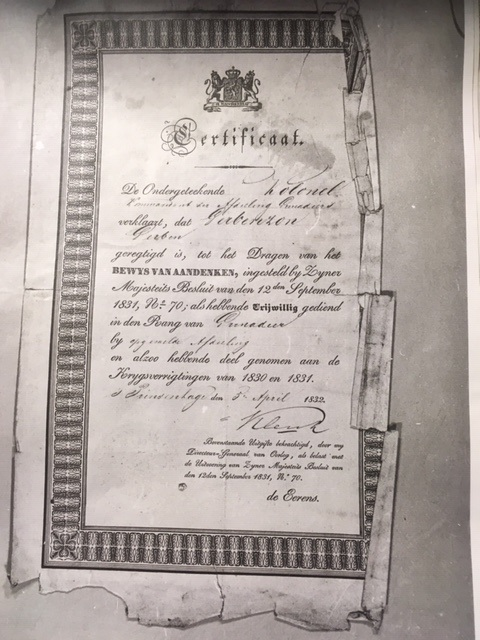 Certificaat.
De Ondergeteekende Kolonel
Kommandant der Afdeeling Grenadiers
verklaart, dat Gerbenzon
Gerben
geregtigd is, tot het Dragen van het
BEWYS VAN AANDENKEN, ingesteld by Zyner
Majesteits Besluit van den 12den September
1831, No. 70; als hebbende Vrijwillig gediend
in den Rang van Grenadier
by opgemelde Afdeeling
en alzoo hebbende deel genomen aan de
Krygsverrigtingen van 1830 en 1831.
's Gravenhage den 5n April 1832.
Klerck
Bovenstaande Uitgifte bekrachtigd, door my
Directeur-Generaal van Oorlog, als belast met
de Uitvoering van Zyner Majesteits Besluit van
den 12den September 1831, No. 70.
de Eerens.